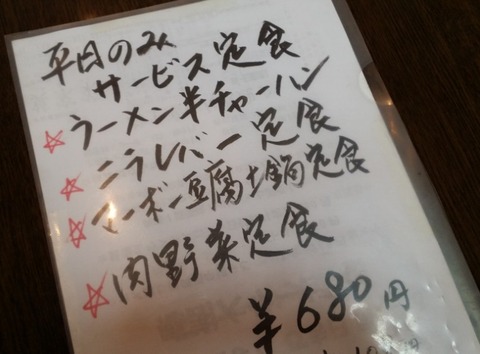 平日のみ
サービス定食
☆ラーメン半チャーハン
☆ニラレバー定食
☆マーボー豆腐土鍋定食
☆肉野菜定食
¥680円